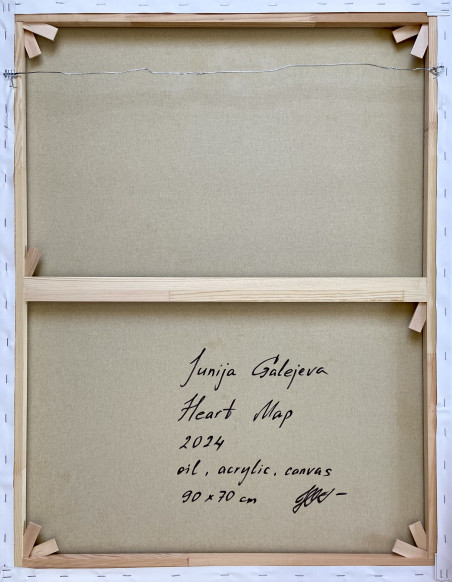 Junija Galejeva
Heart Map
2024
oil, acrylic, canvas
90 x 70 cm